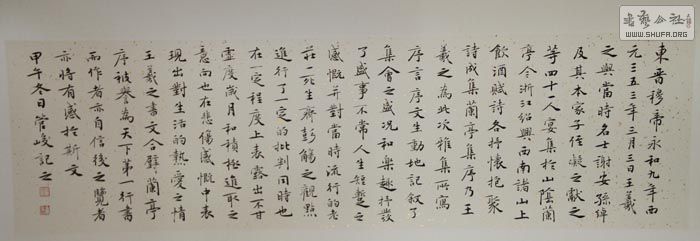 東晋穆帝永和九年西
元三五三年三月三日王羲
之與當時名士謝安孫綽
及其本家子侄凝之獻之
等四十一人宴集於山陰蘭
亭今浙江紹興西南諸山上
飲酒賦詩各抒懷抱聚
詩成集蘭亭集序乃王
羲之為此次雅集所寫
序言序文生動地記叙了
集會之盛况和樂趣抒發
了盛事不常人生短暫之
感慨并對當時流行的老
莊一死生齊彭觴之觀點
進行了一定的批判同時也
在一定程度上表露出不甘
虚度歲月和積極進取之
意向也在悲傷感慨中表
現出對生活的熱愛之情
王羲之書文合璧蘭亭
序被譽為天下第一行書
而作者亦自信後之覽者
亦將有感於斯文
甲午冬日管峻記之
書藝公社
WWW.SHUFA.ORG